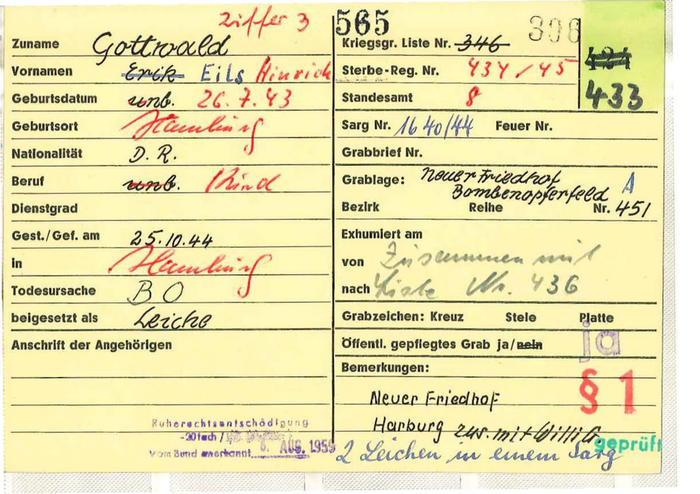 Ziffer 3
565
306
Zuname Gottwald
Kriegsgr. Liste Nr. 346
424
433
Vornamen Erik Eils Hinrich
Sterbe-Reg. Nr. 434/45
Geburtsdatum unb. 26.7.43
Standesamt 8
Geburtsort Hamburg
Sarg Nr. 1640/44 Feuer Nr.
Nationalität D.R.
Grabbrief Nr.
Beruf unb. Kind
Grablage: Neuer Friedhof A
Bombenopferfeld
Dienstgrad
Bezirk Reihe Nr. 451
Gest./Gef. am 25.10.44
Exhumiert am
in Hamburg
von Zusammen mit
Todesursache BO
nach Liste Nr. 436
beigesetzt als Leiche
Grabzeichen: Kreuz Stele Platte
Anschrift der Angehörigen
Öffentl. gepflegtes Grab ja/nein ja
Bemerkungen:
§ 1
Neuer Friedhof
Harburg zus. mit Willi G.
geprüft
2 Leichen in einem Sarg
Ruherechtsentschädigung
-20fach /
vom Bund anerkannt AUG. 1959